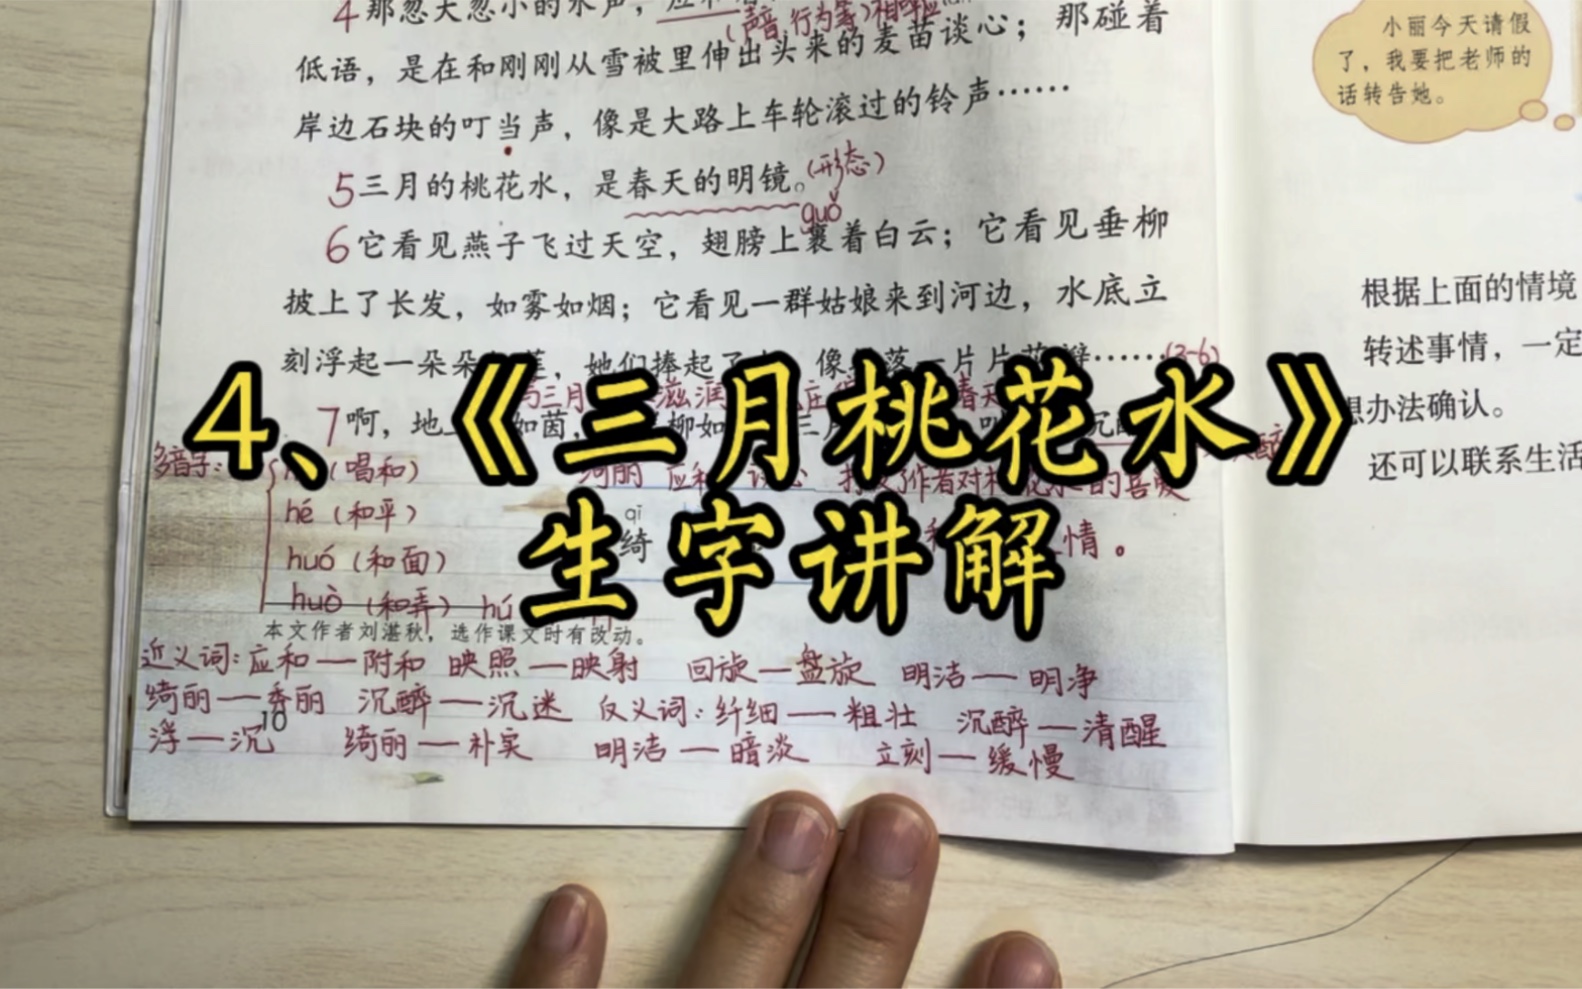 4那忽大忽小的水声，
（声音、行为等）相呼应
低语，是在和刚刚从雪被里伸出头来的麦苗谈心；那碰着
岸边石块的叮当声，像是大路上车轮滚过的铃声……
5三月的桃花水，是春天的明镜。（形态）
guǒ
6它看见燕子飞过天空，翅膀上裹着白云；它看见垂柳
披上了长发，如雾如烟；它看见一群姑娘来到河边，水底立
刻浮起一朵朵 她们捧起了 像 落一片片
(3-6)
7啊，地 如茵， 柳如
多音字：
（唱和）
hé（和平）
huó（和面）
huò（和弄）hú
绮丽 应和 谈心 抒发了作者对 的喜爱
qǐ
绮
情。
本文作者刘湛秋，选作课文时有改动。
近义词：应和—附和 映照—映射 回旋—盘旋 明洁—明净
绮丽—秀丽 沉醉—沉迷 反义词：纤细—粗壮 沉醉—清醒
10
浮—沉 绮丽—朴实 明洁—暗淡 立刻—缓慢
小丽今天请假
了，我要把老师的
话转告她。
根据上面的情境
转述事情，一定
想办法确认。
还可以联系生活
4、《三月桃花水》
生字讲解